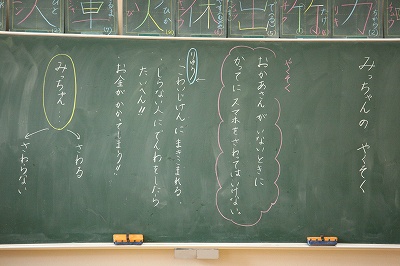 みっちゃんの やくそく
やくそく
おかあさんがいないときに
かってにスマホをさわってはいけない。
りゆう
・こわいじけんにまきこまれる。
・しらない人にでんわをしたら
たいへん!!
・お金がかかってしまう!!
みっちゃん……
さわる
さわらない